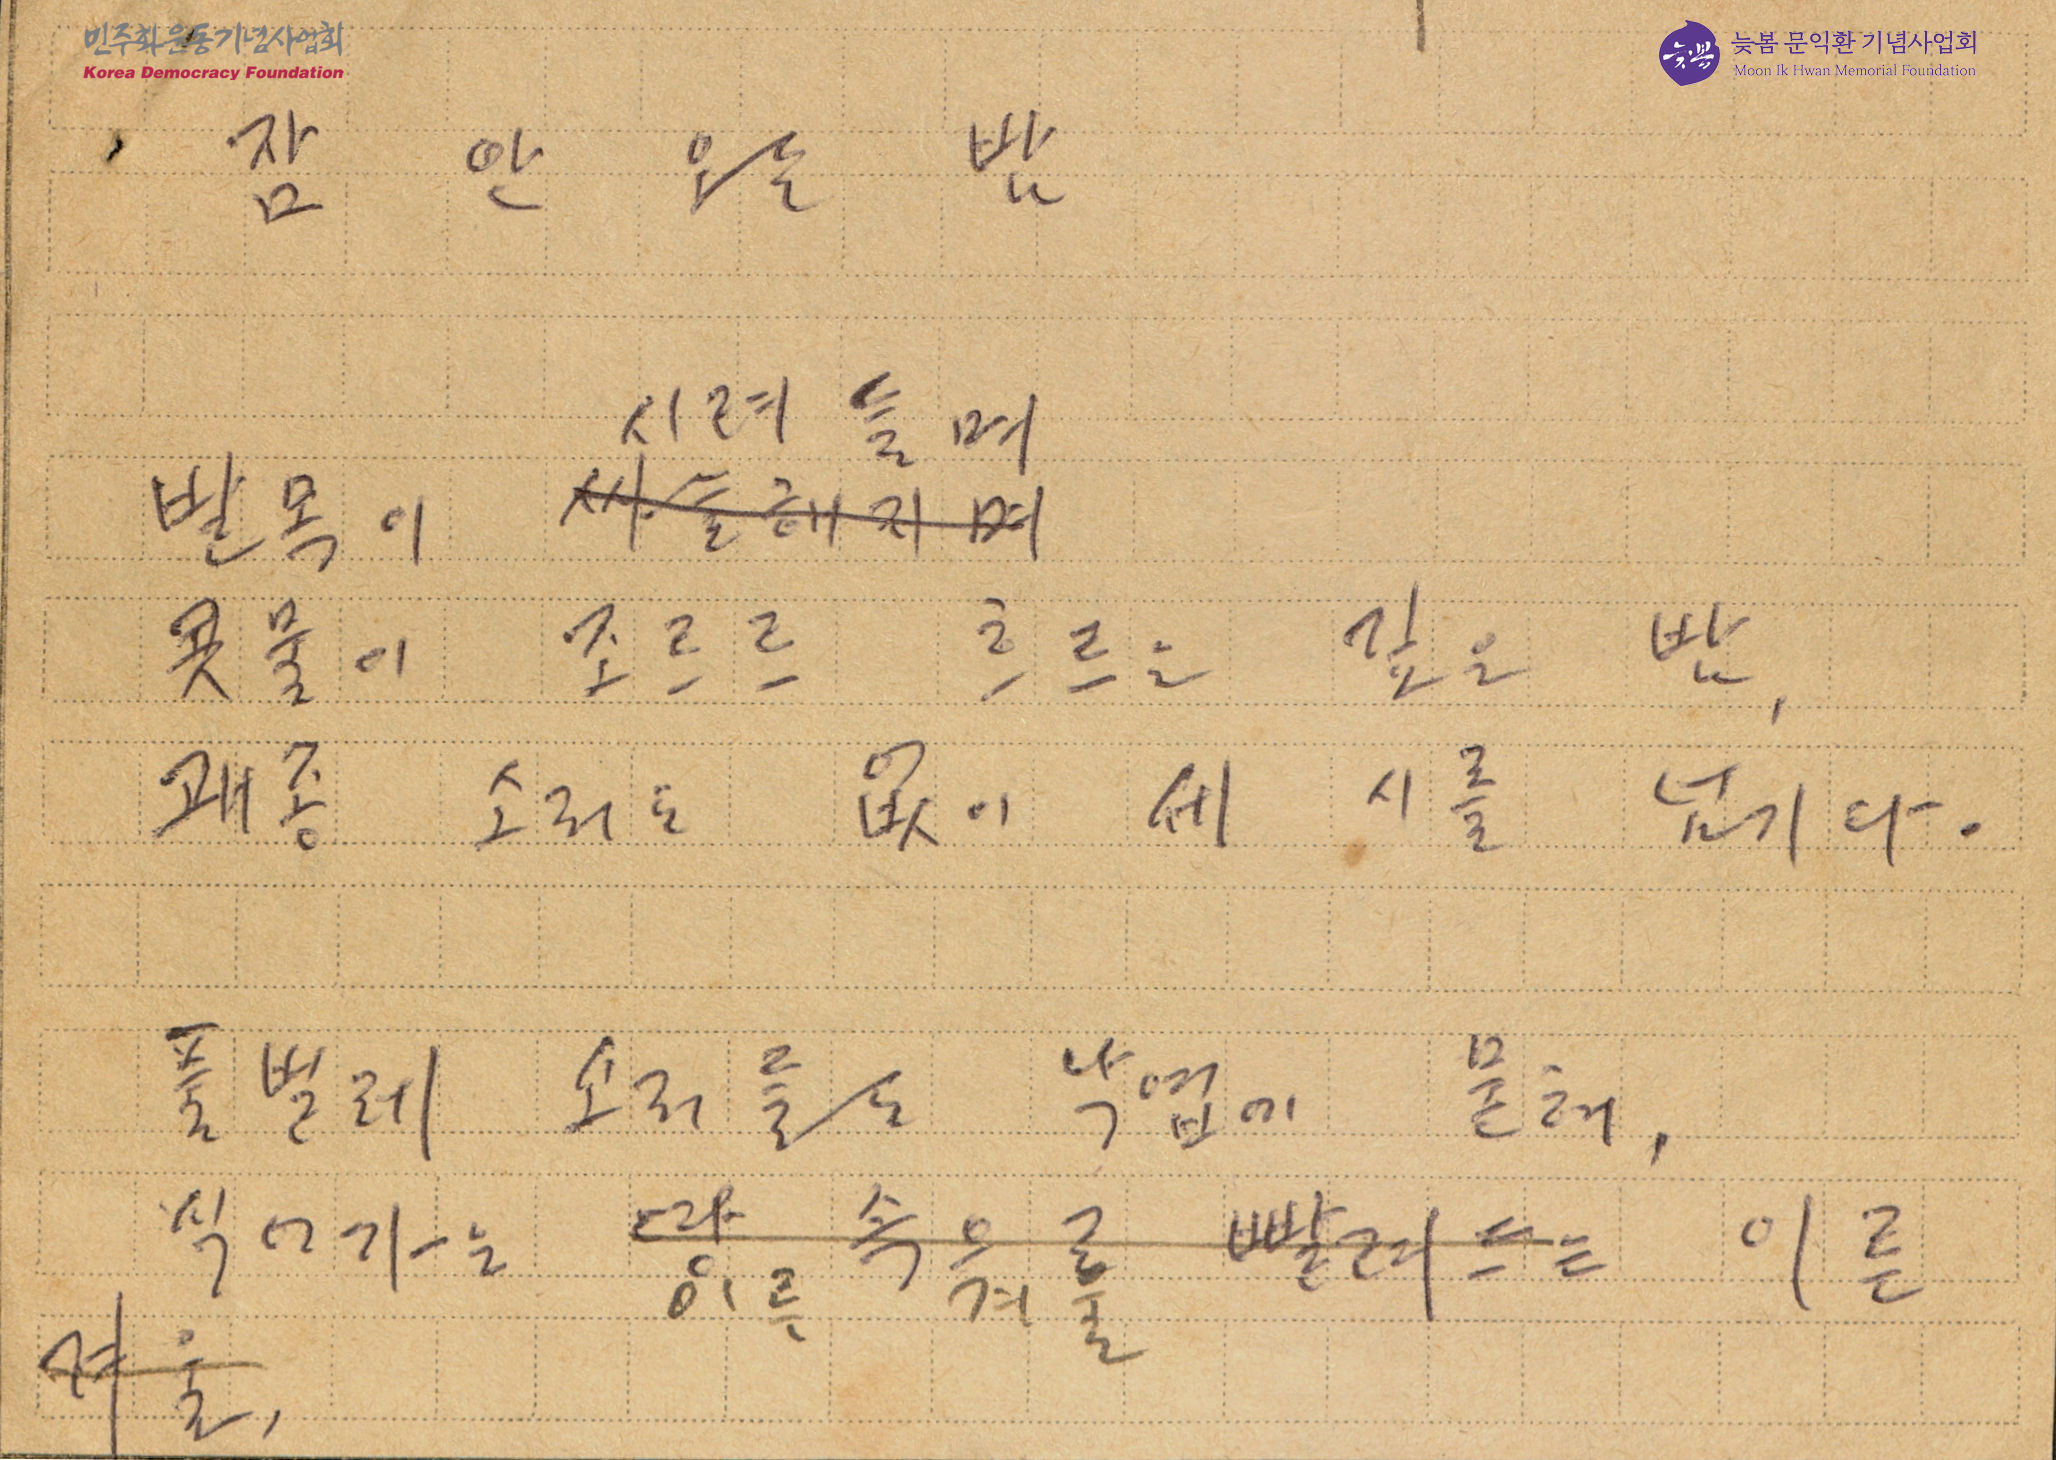 민주화운동기념사업회
Korea Democracy Foundation
늦봄
늦봄 문익환 기념사업회
Moon Ik Hwan Memorial Foundation
잠 안 오는 밤
시려 들며
발목이 씨늘해지며
콧물이 쪼르르 흐르는 깊은 밤,
괘종 소리도 없이 세 시를 넘기다.
풀벌레 소리들도 낙엽에 묻혀,
식어가는 땅 속으로 빨려드는 이른
이른 겨울
겨울,